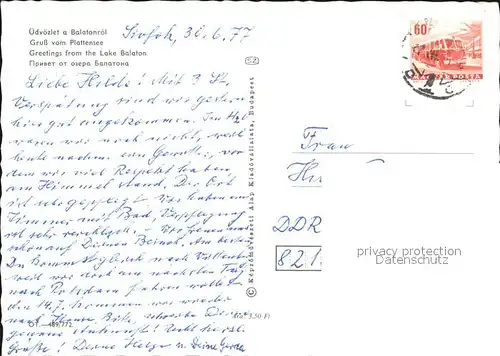 Üdvözlet a Balatonról
Gruß vom Plattensee
Greetings from the Lake Balaton
Привет от озера Балатона
Siofok, 30.6.77
Liebe Hilde! Mit 3 St.
Verspätung sind wir gestern
hier gut angekommen. Im
waren wir noch nicht, weil
heute nachm. ein Gewitter, vor
dem wir viel Respekt haben,
am Himmel stand. Der Ort
ist sehr gepflegt. Wir haben ein
Zimmer mit Bad, Verpflegung
ist sehr
schon auf Deinen Besuch. Am besten
Du kommst
weil wir doch am nächsten Tag
nach Potsdam fahren wollen
den 14.7. kommen wir wieder
nach Hause. Bitte, schreibe Deine
genaue Ankunft! Recht herzl.
Grüße! Deine Helga u. Deine Gerda
Képzőművészeti Alap Kiadóvállalata, Budapest
60f
MAGYAR POSTA
Frau
DDR
821
privacy protection
Datenschutz
3,50 Ft